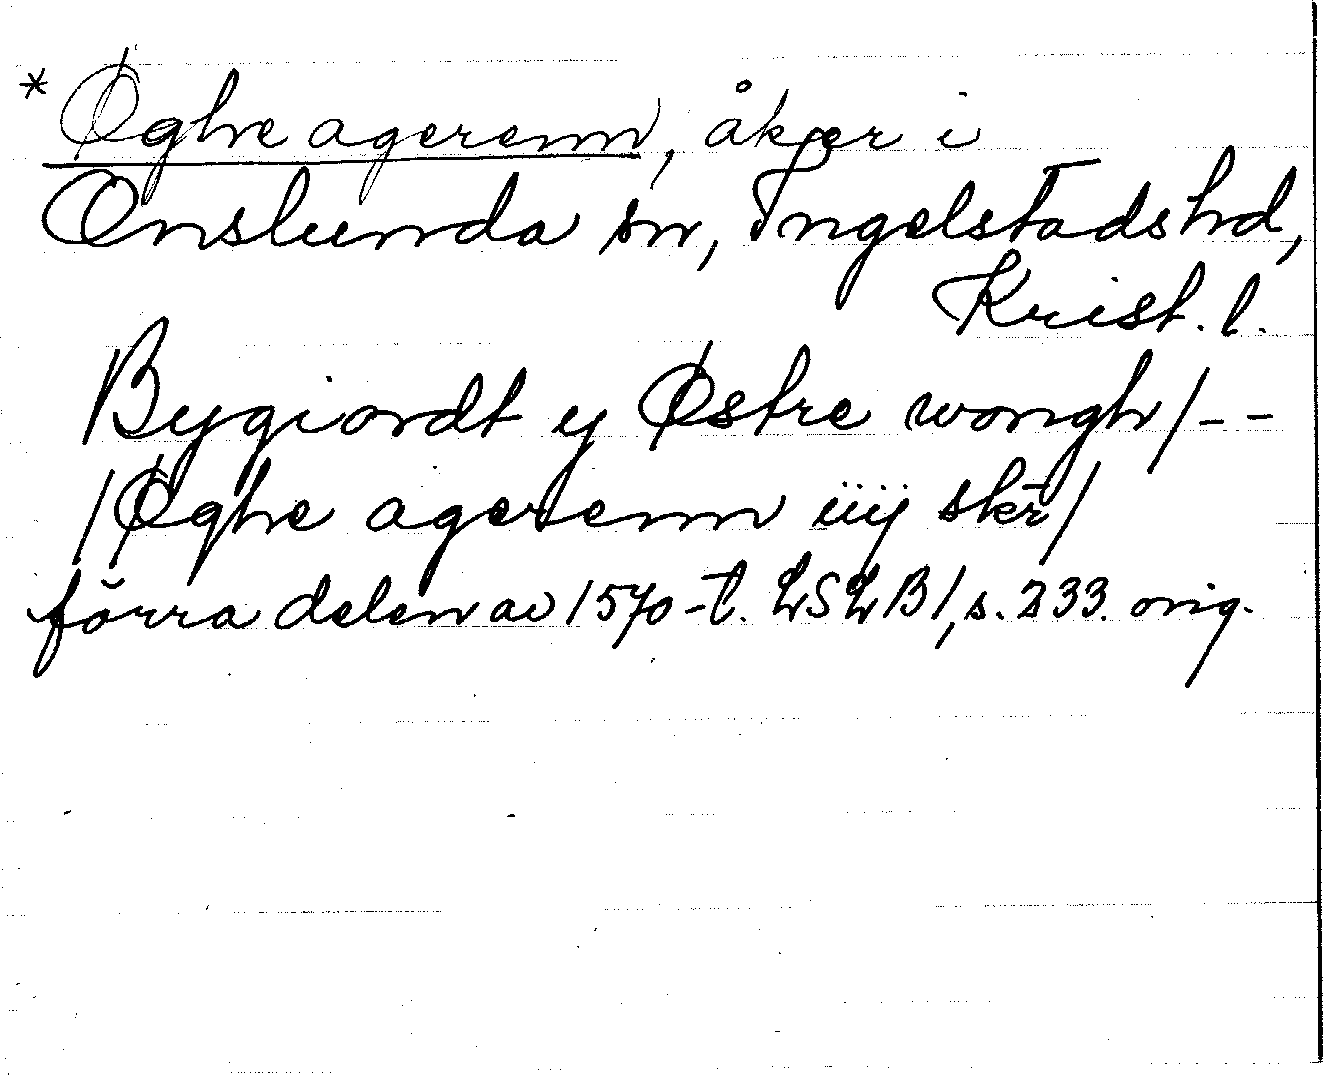 * Øghe agerenn, åker i
Onslunda sn, Ingelstads hd,
Krist. l.
Bygiordt y Østre wongh/--
/Øghe agerenn iiij skr/
förra delen av 1570-t. LSLB1, s. 233. orig.